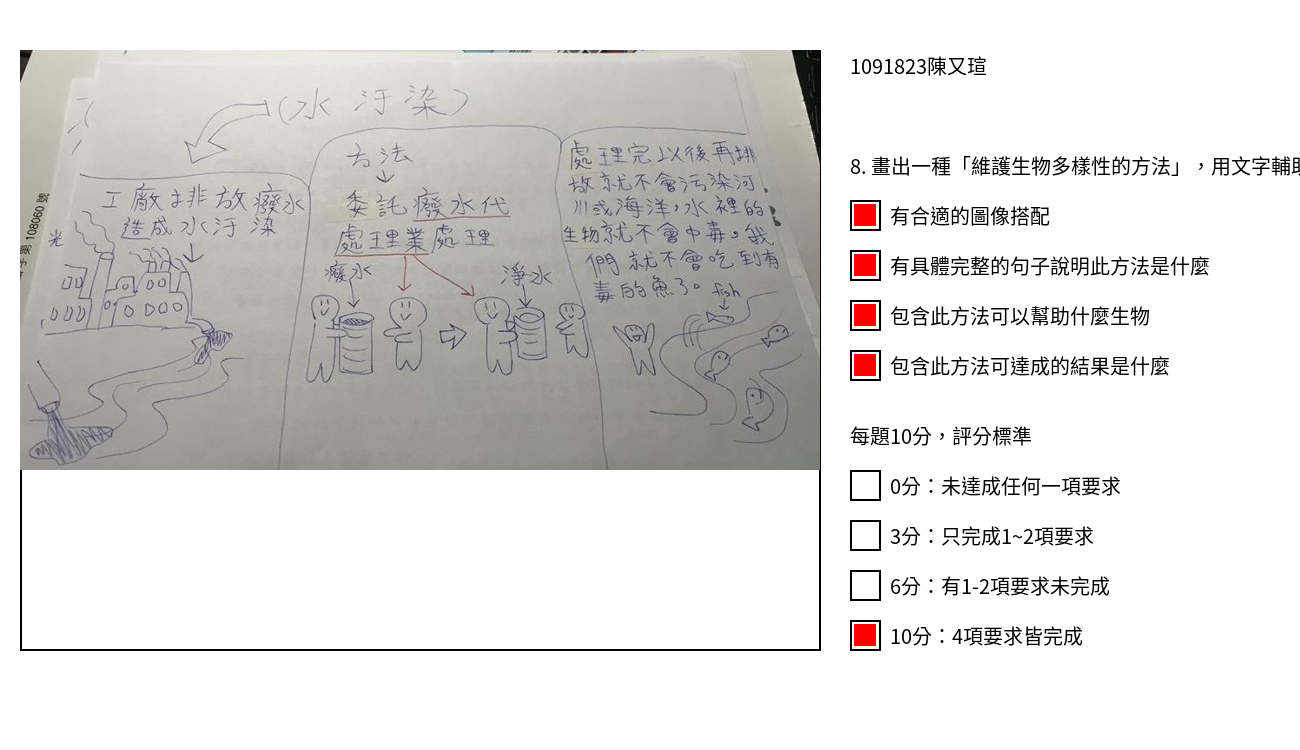 (水汙染)
工廠排放廢水
造成水汙染
方法
委託廢水代
處理業處理
廢水
淨水
處理完以後再排
放就不會污染河
川或海洋,水裡的
生物就不會中毒。我
們就不會吃到有
毒的魚了。
fish
第 108060 號
1091823陳又瑄
8. 畫出一種「維護生物多樣性的方法」,用文字輔
有合適的圖像搭配
有具體完整的句子說明此方法是什麼
包含此方法可以幫助什麼生物
包含此方法可達成的結果是什麼
每題10分,評分標準
0分:未達成任何一項要求
3分:只完成1~2項要求
6分:有1-2項要求未完成
10分:4項要求皆完成